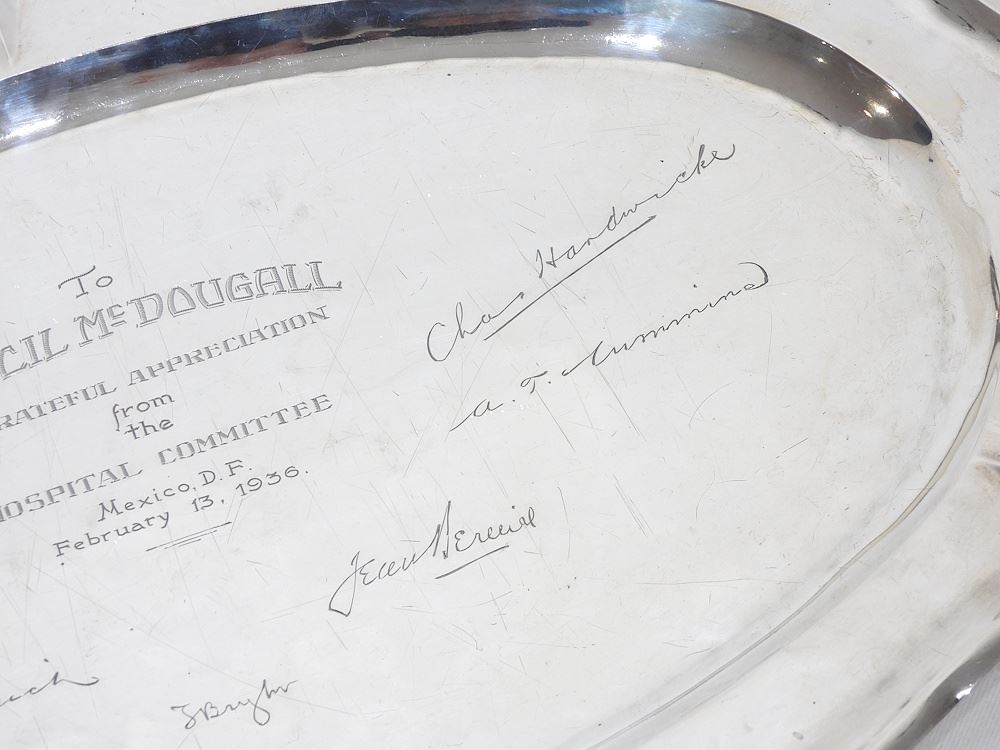 To
CIL McDOUGALL
RATEFUL APPRECIATION
from
the
HOSPITAL COMMITTEE
Mexico, D.F.
February 13, 1936.
Chas Hardwicke
A. T. Cummins
Jean